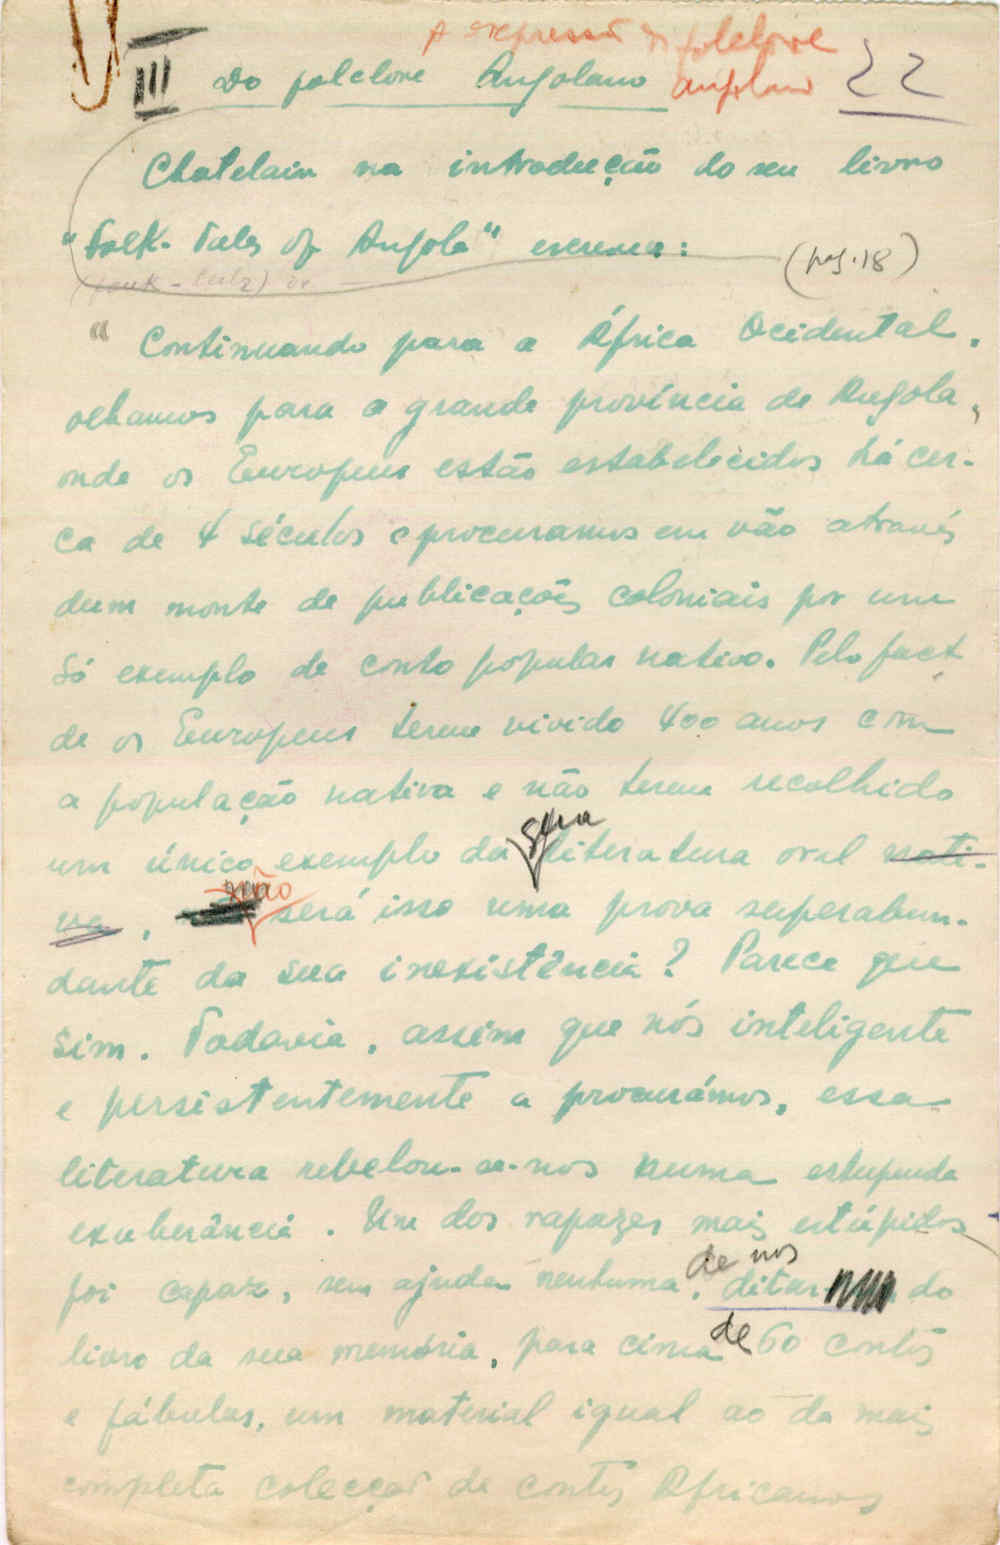 A expressão folclore
III Do folclore Angolano angolano 22
Chatelain na introdução do seu livro
"Folk-Tales of Angola" escreveu: (pag. 18)
"Continuando para a África Ocidental,
olhamos para a grande província de Angola,
onde os Europeus estão estabelecidos há cer-
ca de 4 séculos e procuramos em vão através
dum monte de publicações coloniais por um
só exemplo de conto popular nativo. Pelo fact
de os Europeus terem vivido 400 anos com
a população nativa e não terem recolhido
um único exemplo da sua literatura oral nati-
va, não será isso uma prova superabun-
dante da sua inexistência? Parece que
sim. Todavia, assim que nós inteligente
e persistentemente a procurámos, essa
literatura rebelou-se-nos numa estupenda
exuberância. Um dos rapazes mais estúpidos
foi capaz, sem ajuda nenhuma, de nos ditar do
livro da sua memória, para cima de 60 contos
e fábulas, um material igual ao da mais
completa colecção de contos Africanos